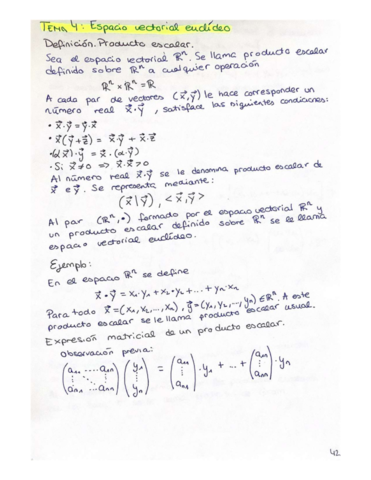 TEMA 4: Espacio vectorial euclídeo
Definición. Producto escalar.
Sea el espacio vectorial ℝⁿ. Se llama producto escalar
definido sobre ℝⁿ a cualquier operación
ℝⁿ × ℝⁿ = ℝ
A cada par de vectores (x⃗,y⃗) le hace corresponder un
número real x⃗·y⃗, satisface las siguientes condiciones:
• x⃗·y⃗ = y⃗·x⃗
• x⃗(y⃗+z⃗) = x⃗·y⃗ + x⃗·z⃗
• (α x⃗)·y⃗ = x⃗·(α·y⃗)
• Si x⃗≠0 => x⃗·x⃗>0
Al número real x⃗·y⃗ se le denomina producto escalar de
x⃗ e y⃗. Se representa mediante:
(x⃗|y⃗), <x⃗,y⃗>
Al par (ℝⁿ,•) formado por el espacio vectorial ℝⁿ y
un producto escalar definido sobre ℝⁿ se le llama
espacio vectorial euclídeo.
Ejemplo:
En el espacio ℝⁿ se define
x⃗·y⃗ = x₁·y₁ + x₂·y₂ + ... + yₙ·xₙ
Para todo x⃗=(x₁,x₂,...,xₙ), y⃗=(y₁,y₂,...,yₙ) ∈ ℝⁿ. A este
producto escalar se le llama producto escalar usual.
Expresión matricial de un producto escalar.
Observación previa:
(a₁₁ ... a₁ₙ) (y₁) = (a₁₁) (a₁ₙ)
(⋮ ⋱ ⋮) (⋮) (⋮) ·y₁ + ... + (⋮) ·yₙ
(aₙ₁ ... aₙₙ) (yₙ) (aₙ₁) (aₙₙ)
42